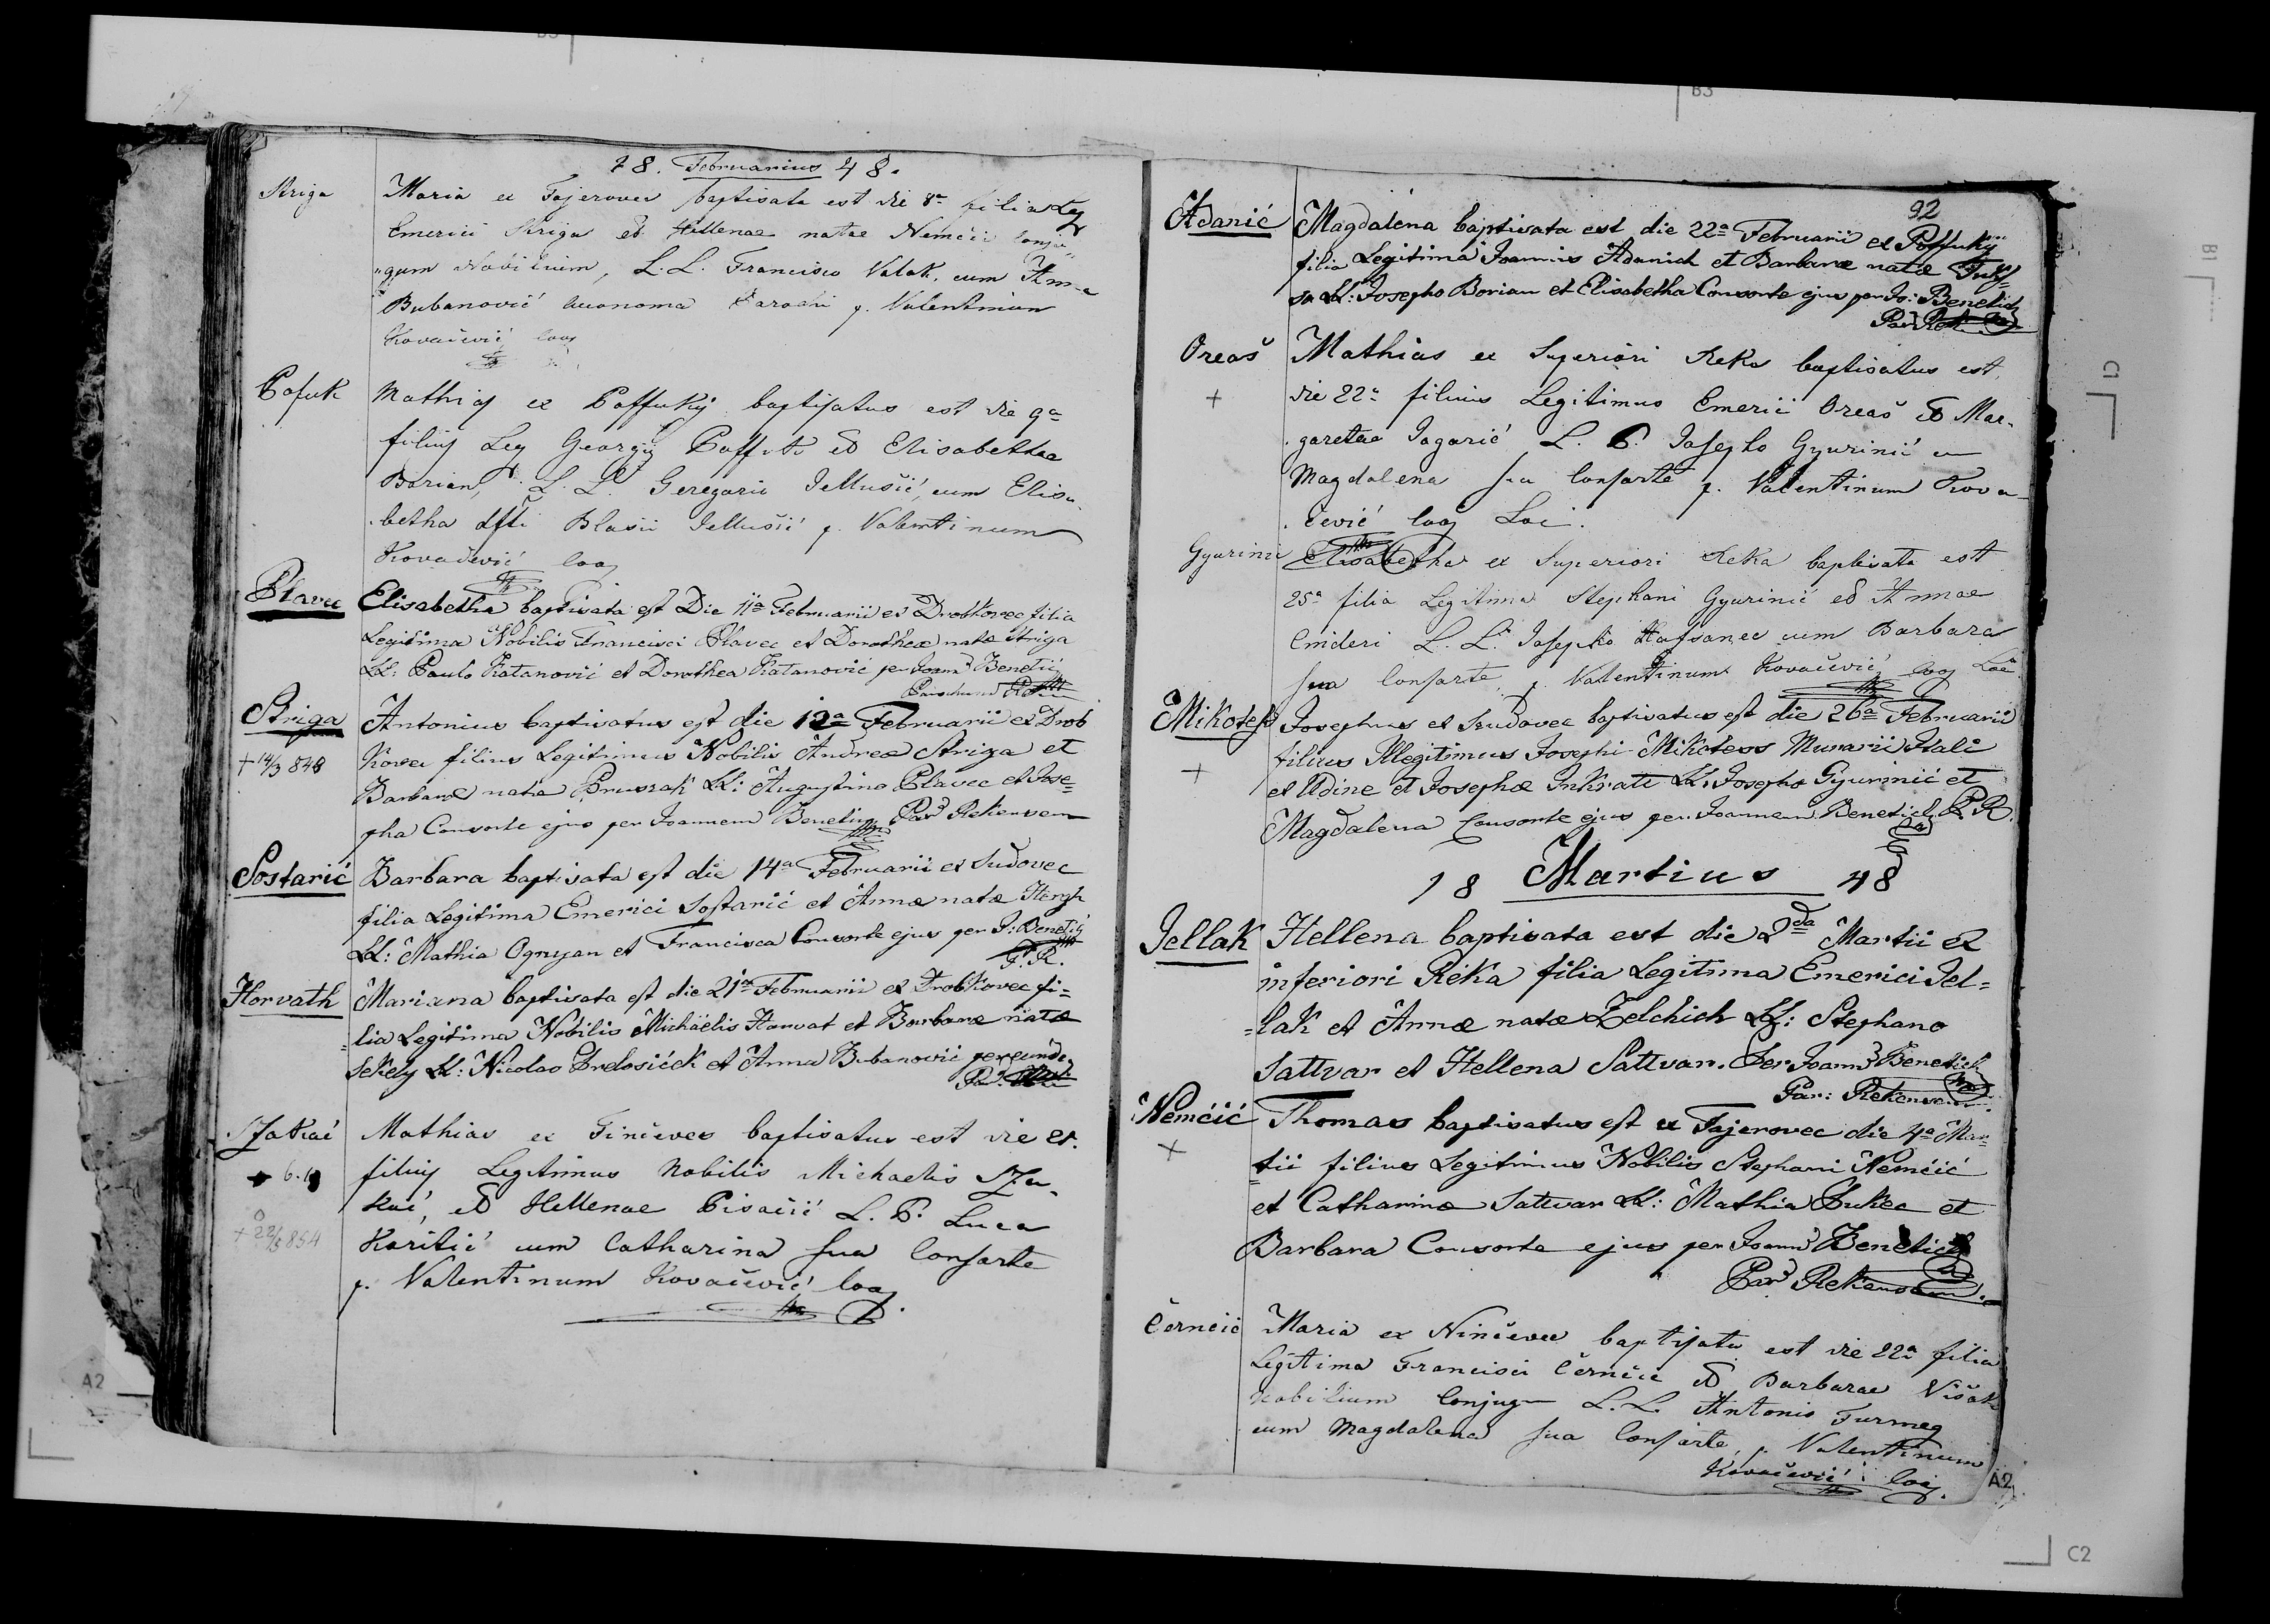 18. Februarius 48.
Striga
Maria ex Fajerovec baptisata est die 8a filia Leg
Emerici Striga et Hellenae natae Nemčić conju
gum Nobilium, L.L. Francisco Valak, cum Anna
Bubanović Parochi p. Valentinum
Kovačević Coop
Pofuk
Mathias ex Poffuky baptisatus est die 9a
filius Leg Georgij Poffuk et Elisabethae
Borian, L.L. Geregorio Jellušić, cum Elisa
betha Blasii Jellušić p. Valentinum
Kovačević Coop
Plavec
Elisabetha baptisata est Die 11a Februarii ex Drobkovec filia
Legitima Nobilis Francisci Plavec et Dorotheæ natæ Striga
LL: Paulo Katanović et Dorothea Katanović per Joan: Benetić
Striga
+ 14/3 848
Antonius baptisatus est die 12a Februarii ex Drob
kovec filius Legitimus Nobilis Andreæ Striga et
Barbaræ nata Pruszak LL: Augustino Plavec et Jose=
pha Consorte ejus per Joannem Benetich Par Rekensem
Sostarić
Barbara baptisata est die 14a Februarii ex Sudovec
filia Legitima Emerici Sostarić et Annæ natæ Hergh
LL: Mathia Ognyan et Francisca Consorte ejus per J: Benetić
P. R.
Horvath
Mariana baptisata est die 21ma Februarii ex Drobkovec fi=
=lia Legitima Nobilis Michaelis Horvat et Barbaræ natæ
Sekely LL: Nicolao Predosićek et Anna Bubanović per eunde
Szakač
6.
+ 22/5 854
Mathias ex Finčevec baptisatus est die 21.
filius Legitimus Nobilis Michaelis Sza
kač, et Hellenae Pisačić L. P. Luca
Koritić cum Catharina sua Consorte
p. Valentinum Kovačević Coop
92
Adanić
Magdalena baptisata est die 22a Februarii ex Poffuky
filia Legitima Joannis Adanich et Barbaræ natæ Fuk
sa LL: Josepho Borian et Elisabetha Consorte ejus per Jo: Benetich
Oreaš
+
Mathias ex Superiori Reka baptisatus est
die 22a filius Legitimus Emerici Oreaš et Mar
garetae Jagarić L. P. Josepho Gyurinić cu
Magdalena sua Consorte p. Valentinum Kova
čević Coop Loci.
Gyurinić
Elisabetha ex Superiori Reka baptisata est
25a filia Legitima Stephani Gyurinić et Annae
Cmideri L. L. Josepho Hafsanec cum Barbara
sua Consorte, p. Valentinum Kovačević Coop Loc
Mikotess
+
Josephus ex Szudovec baptisatus est die 26a Februarii
filius Illegitimus Josephi Mikotess Murarii Itali
et Udine et Josephæ Inkrati LL: Josepho Gyurinić et
Magdalena Consorte ejus per Joannem Benetich P. R.
18 Martius 48
Jellak
Hellena baptisata est die 2da Martii ex
inferiori Reka filia Legitima Emerici Jel=
=lak et Annæ natæ Zelchich LL: Stephano
Sattvar et Hellena Sattvar. Per Joann Benetich
Par: Rekensem
Nemčić
+
Thomas baptisatus est ex Fajerovec die 4a Mar
tii filius Legitimus Nobilis Stephani Nemčić
et Catharinæ Sattvar LL: Mathia Lukec et
Barbara Consorte ejus per Joann Benetich
Par Rekensem
Černčić
Maria ex Ninčevec baptisata est die 22a filia
Legitima Francisci Černčić et Barbarae Višak
Nobilium Conjugu L.L. Antonio Furmeg
cum Magdalena sua Consorte, p. Valentinum
Kovačević Coop.
B3
B1
C1
A2
A2
C2